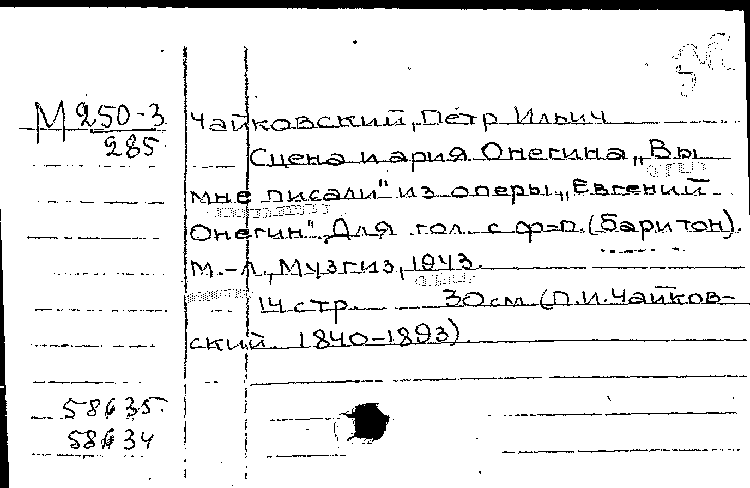 М 250-3
285
Чайковский, Петр Ильич
Сцена и ария Онегина „Вы
мне писали" из оперы „Евгений
Онегин". Для гол. с ф-п. (баритон).
М.-Л., Музгиз, 1943.
14 стр. 30 см (П.И. Чайков-
ский. 1840-1893).
58635
58634